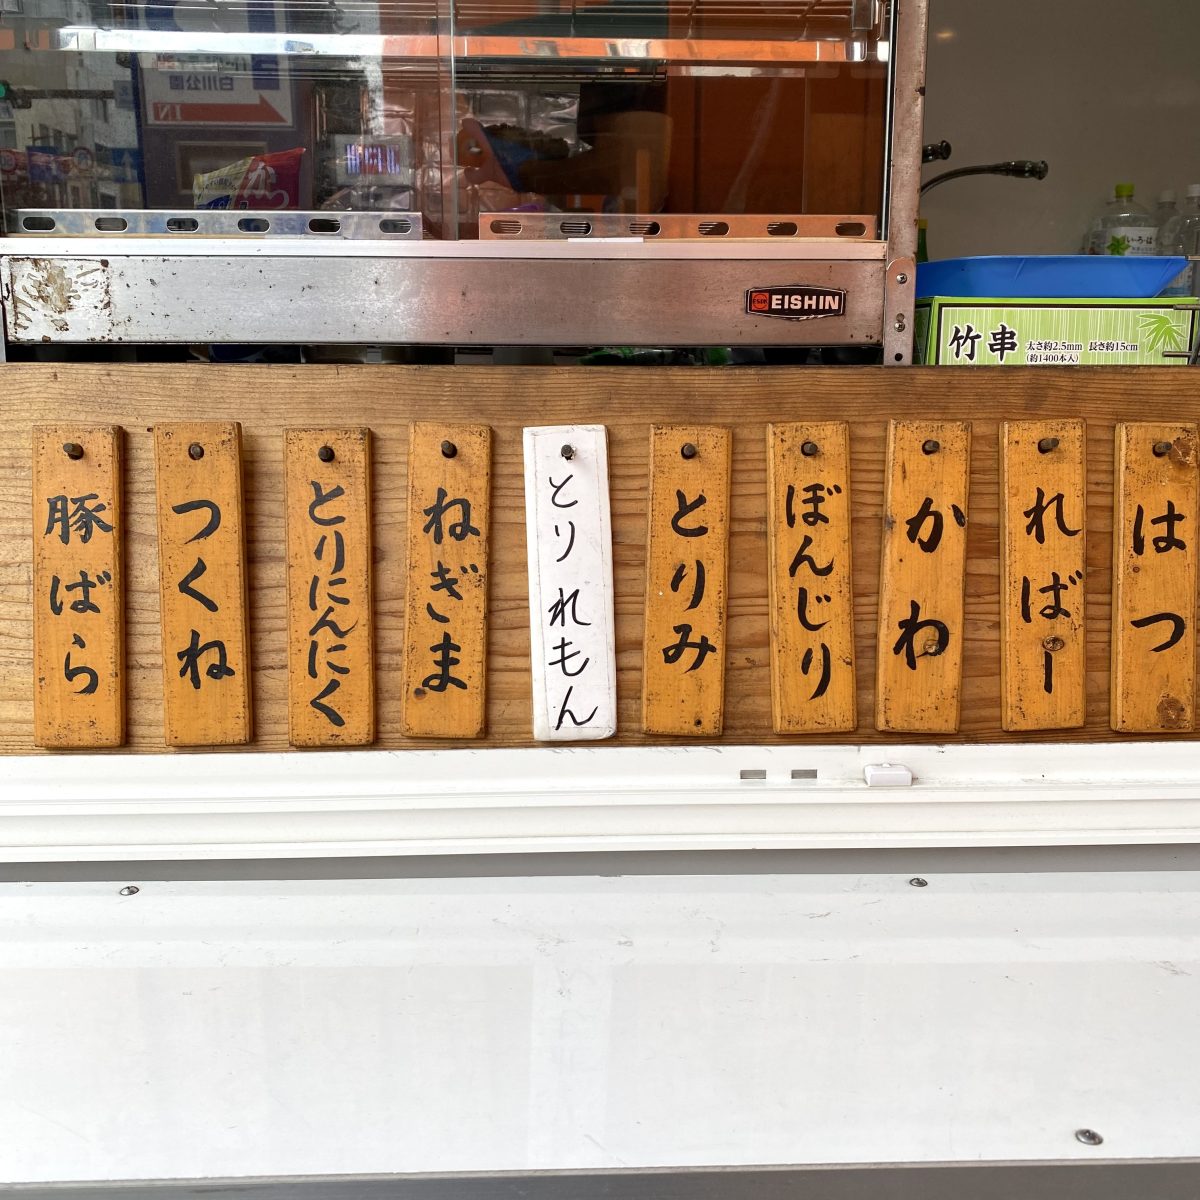 白川公園
IN
EISHIN
い・ろ・は・す
竹串 太さ約2.5mm 長さ約15cm
(約1400本入)
はつ
ればー
かわ
ぼんじり
とりみ
とりれもん
ねぎま
とりにんにく
つくね
豚ばら